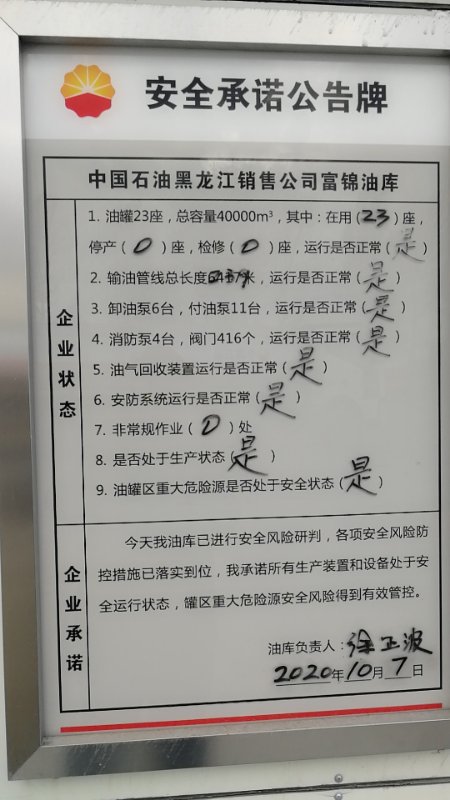 安全承诺公告牌
中国石油黑龙江销售公司富锦油库
企业状态
1. 油罐23座，总容量40000m³，其中：在用（23）座，
停产（0）座，检修（0）座，运行是否正常（是）
2. 输油管线总长度米，运行是否正常（是）
3. 卸油泵6台，付油泵11台，运行是否正常（是）
4. 消防泵4台，阀门416个，运行是否正常（是）
5. 油气回收装置运行是否正常（是）
6. 安防系统运行是否正常（是）
7. 非常规作业（0）处
8. 是否处于生产状态（是）
9. 油罐区重大危险源是否处于安全状态（是）
企业承诺
今天我油库已进行安全风险研判，各项安全风险防
控措施已落实到位，我承诺所有生产装置和设备处于安
全运行状态，罐区重大危险源安全风险得到有效管控。
油库负责人：徐正波
2020年10月7日